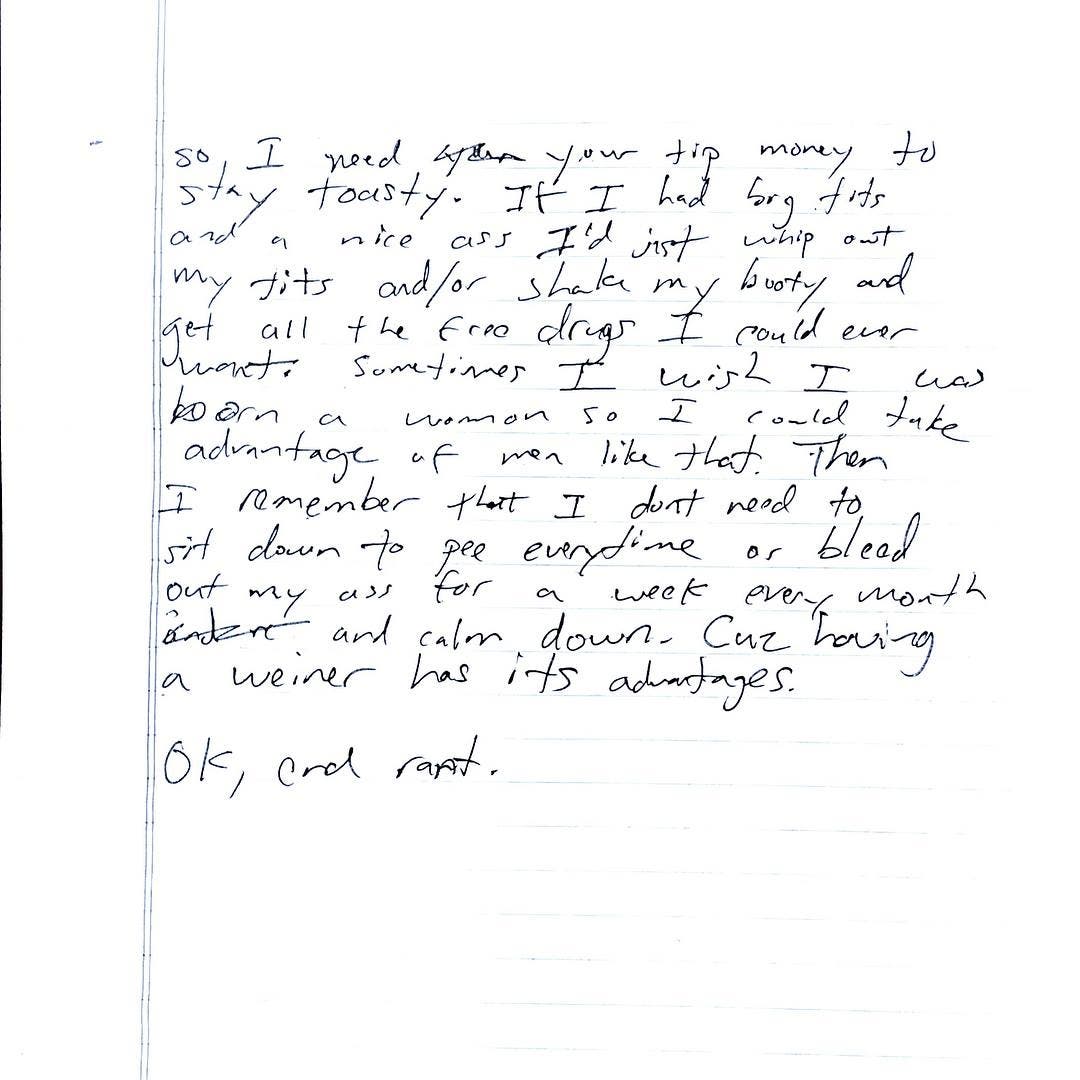 so, I need your tip money to
stay toasty. If I had big tits
and a nice ass I'd just whip out
my tits and/or shake my booty and
get all the free drugs I could ever
want. Sometimes I wish I was
born a woman so I could take
advantage of men like that. Then
I remember that I dont need to
sit down to pee everytime or bleed
out my ass for a week every month
and calm down. Cuz having
a weiner has its advantages.
OK, end rant.